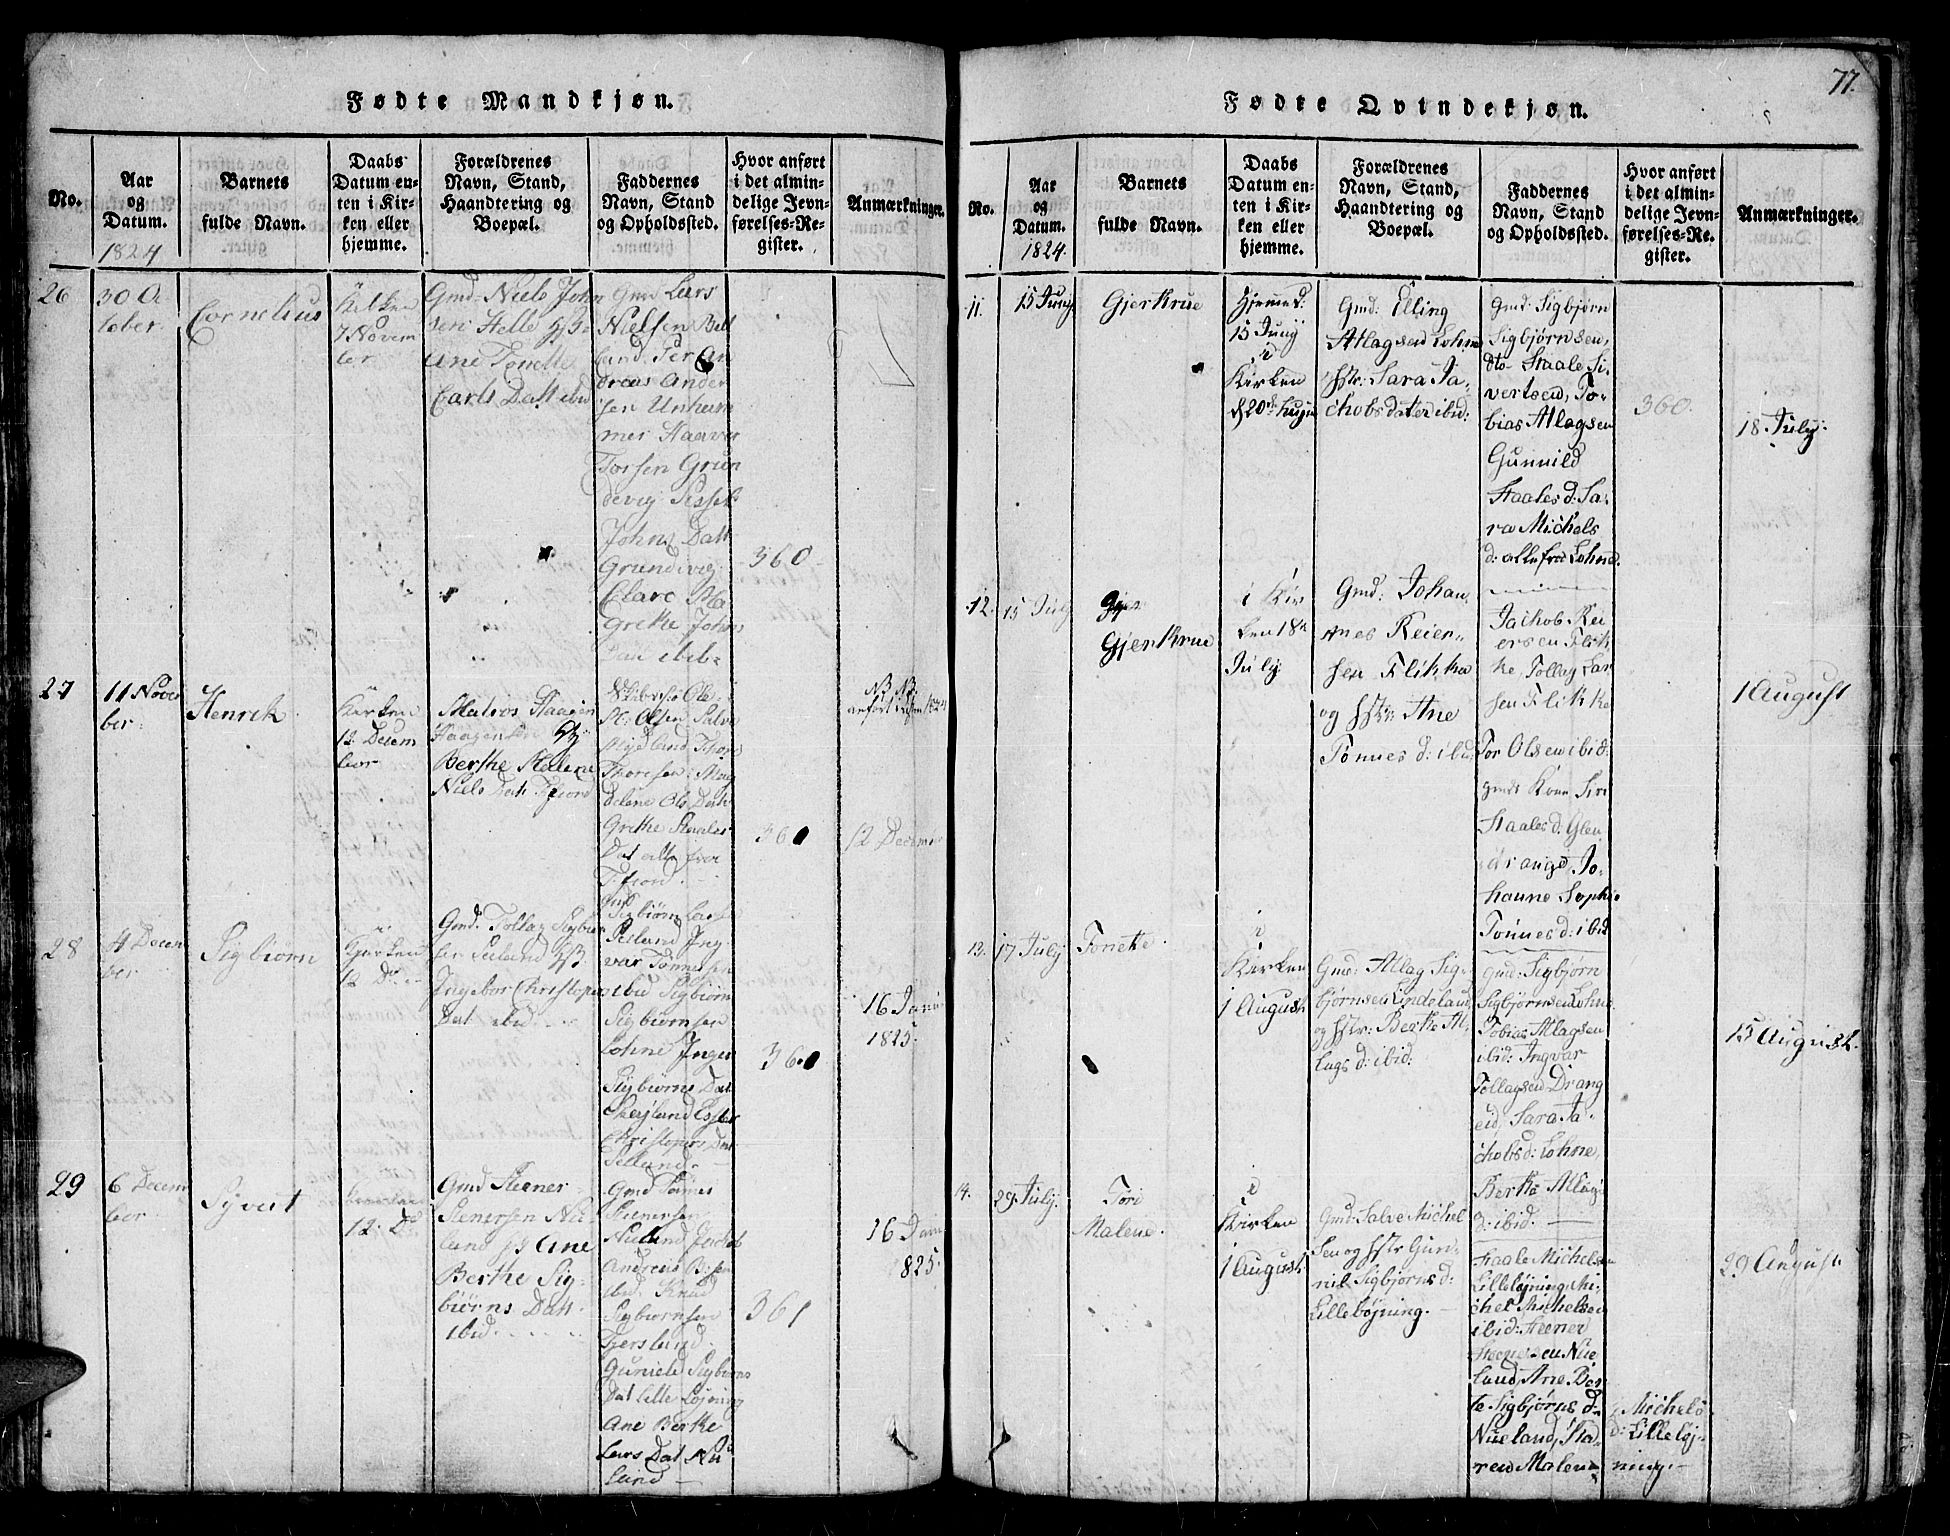 77.
Fødte Mandkjøn.
No.
Aar
og
Datum.
1824
Barnets
fulde Navn.
Daabs
Datum en-
ten i Kir-
ken eller
hjemme.
Forældrenes
Navn, Stand,
Haandtering og
Boepæl.
Faddernes
Navn, Stand
og Opholdssted.
Hvor anført
i det almin-
delige Jevn-
førelses-Re-
gister.
Anmærkninger.
26
30 O
tober.
Cornelius
Kirken
7 Novem
ber
Gmd: Niels John
sen Helle
Ane Tonette
Carls Datt ibid
Gmd Lars
Nielsen
land Per An
dreas Ander
sen Unhum
mer Haaver
Torsen Grun
devig Sissel
Johns Datt
Grundevig
Clare Ma
grethe Johns
Datt ibid
360
27
11 Novem
ber.
Henrik
Kirken
12 Decem
ber
Matros Haagen
Haagensen
Berthe Malene
Niels Datt Fiord
Ole
Olsen Salve
Thom
Thoresen
delene Ols Datt
Grethe Staales
Dat alle fra
fiord.
360
NB NB
12 Decem
28
4 Decem
ber
Sigbiørn
i
Kirken
12 Do
Gmd. Tollag Sigbiør
sen Seiland
Ingebor Christophers
Dat ibid.
Gmd
Sigbiørn Lars
Seiland Ing
var Tønnessen
ibid Sigbiørn
Sigbiørnsen
Lohne Inger
Sigbiørns Dat
Skeyland Ester
Christophers Dat
Seiland.
360
16 Janu
1825.
29
6 Decem
ber
Syvert
12. Do
Gmd Steener
Stenersen Nu
land Ane
Berthe Sig-
biørns Datt
ibid
Gmd Tønnes
Steenersen
Nuland Jacob
Andreas
ibid. Knud
Sigbiørnsen
Fjersland
Guniele Sigbiørns
Dat Lille Løjning
Ane Berthe
Lars Dat Nu
land
361
16 Janu
825.
Fødte Qvindekjøn.
No.
Aar
og
Datum.
1824.
Barnets
fulde Navn.
Daabs
Datum en-
ten i Kir-
ken eller
hjemme.
Forældrenes
Navn, Stand,
Haandtering og
Boepæl.
Faddernes
Navn, Stand
og Opholdssted.
Hvor anført
i det almin-
delige Jevn-
førelses-Re-
gister.
Anmærkninger.
11.
15 Juny
Gjerthrue
Hjemmed:
15 Juny
i
Kirken
d 20de
Gmd: Elling
Atlagsen Lohne
Hstr: Sara Ja-
chobsdater ibid:
Gmd: Sigbjørn
Sigbjørnsen,
dto Staale Si-
vertsen, To-
bias Atlagsen
Gunnild
Staales d: Sa-
ra Michels
d: alle fra Lohne.
360.
18 July.
12.
15 July
Gjer
Gjerthrue
i Kir
ken 18de
July
Gmd: Johan,
nes Reier-
sen Flikke
og Hstr: Ane
Tønnes d: ibid
Jachob Rei
ersen Flik
ke, Tollag Lar
sen Flikke
Tor Olsen ibid:
gmds Kone Siri
Staales d: Glen
drange, Jo-
hanne Sophie
Tønnes d: ibid
1 August
13.
17 July
Tonette.
i
Kirken
1 August
Gmd: Atlag Sig-
bjørnsen Lindeland
og Hstr: Berthe At-
lags d: ibid:
gmd: Sigbjørn
Sigbjørnsen Lohne
Tobias Atlagsen
ibid: Ingvar
Tollagsen Drang
eid, Sara Ja-
chobs d: Lohne,
Berthe Atlags
d: ibid.
15 August.
14.
29 July.
Tori
Malene.
i
Kirken
1 August.
Gmd: Salve Michel
sen og Hstr Gun-
nil Sigbjørns d:
Lilleløjning.
Staale Michelsen
Lilleløjning Mi-
chel Michelsen
ibid: Steener
Steenersen Nue
land, Ane Ber
te Sigbjørns d:
Nueland, Ka-
ren Malene
Michels
d: Lilleløj-
ning.
29 August